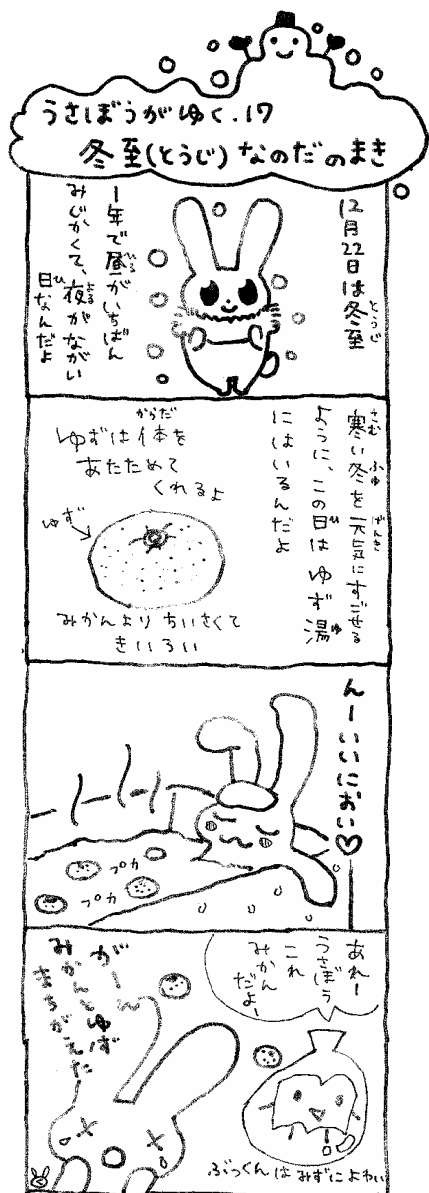 うさぼうがゆく.17
冬至(とうじ)なのだのまき
12月22日は冬至
とうじ
1年で昼がいちばん
ひる
みじかくて、夜がながい
よる
日なんだよ
ひ
寒い冬を元気にすごせる
さむ ふゆ げんき
ように、この日はゆず湯
ひ ゆ
にはいるんだよ
ゆずは体を
からだ
あたためて
くれるよ
ゆず
みかんよりちいさくて
きいろい
んーいいにおい♡
プカ
プカ
あれー
うさぼう
これ
みかん
だよー
がーん
みかんとゆず
まちがえた
ぶっくんはみずによわい